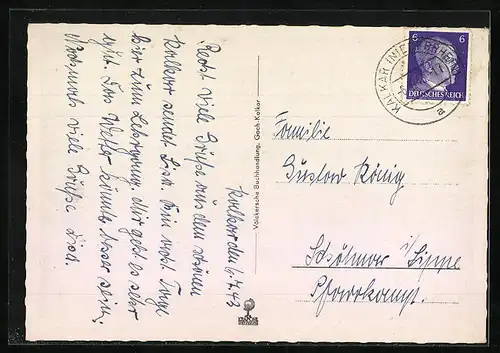 Kalkar den 6.7.43
Recht viele Grüße aus dem schönen
Kalkar sendet Lisa. Bin acht Tage
hier zum Lehrgang. Mir geht es sehr
gut. Das Wetter könnte besser sein.
Nochmals viele Grüße Lisa.
Völckersche Buchhandlung, Goch-Kalkar
KALKAR
a
6 6
DEUTSCHES REICH
Familie
Gustav König
Schötmar i/Lippe